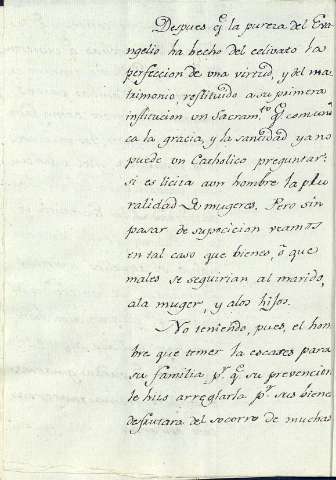 Despues q.e la pureza del Eva
ngelio ha hecho del celivato la
perfeccion de una virtud, y del ma
trimonio, restituido a su primera
institucion un Sacram.to q.e comuni
ca la gracia, y la santidad ya no
puede un Catholico preguntar:
si es licita aun hombre la plu
ralidad de mugeres. Pero sin
pasar de suposicion veamos
en tal caso que bienes, ò que
males se seguirian al marido,
ala muger, y alos hijos.
No teniendo, pues, el hom
bre que temer la escases para
su familia p.r q.e su prevencion
le hiso arreglarla p.r sus biene
disfrutara del socorro de muchas